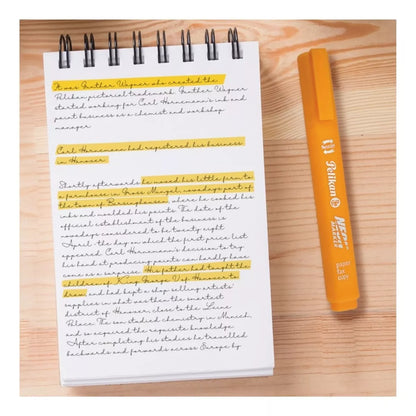 It was Günther Wagner who created the
Pelikan pictorial trademark. Günther Wagner
started working for Carl Hornemann's ink and
paint business as a chemist and workshop
manager.
Carl Hornemann had registered his business
in Hanover.
Shortly afterwards he moved his little firm to
a farmhouse in Gross Munzel, nowadays part of
the town of Barsinghausen, where he cooked his
inks and moulded his paints. The date of the
official establishment of the business is
nowadays considered to be twenty eight
April - the day on which the first price list
appeared. Carl Hornemann's decision to try
his hand at producing paints can hardly have
come as a surprise. His father had taught the
children of King George V of Hanover to
draw and had kept a shop selling artists'
supplies in what was then the smartest
district of Hanover, close to the Leine
Palace. The son studied chemistry in Munich,
and so acquired the requisite knowledge.
After completing his studies he travelled
backwards and forwards across Europe by
Pelikan
NEON
paper
fax
copy